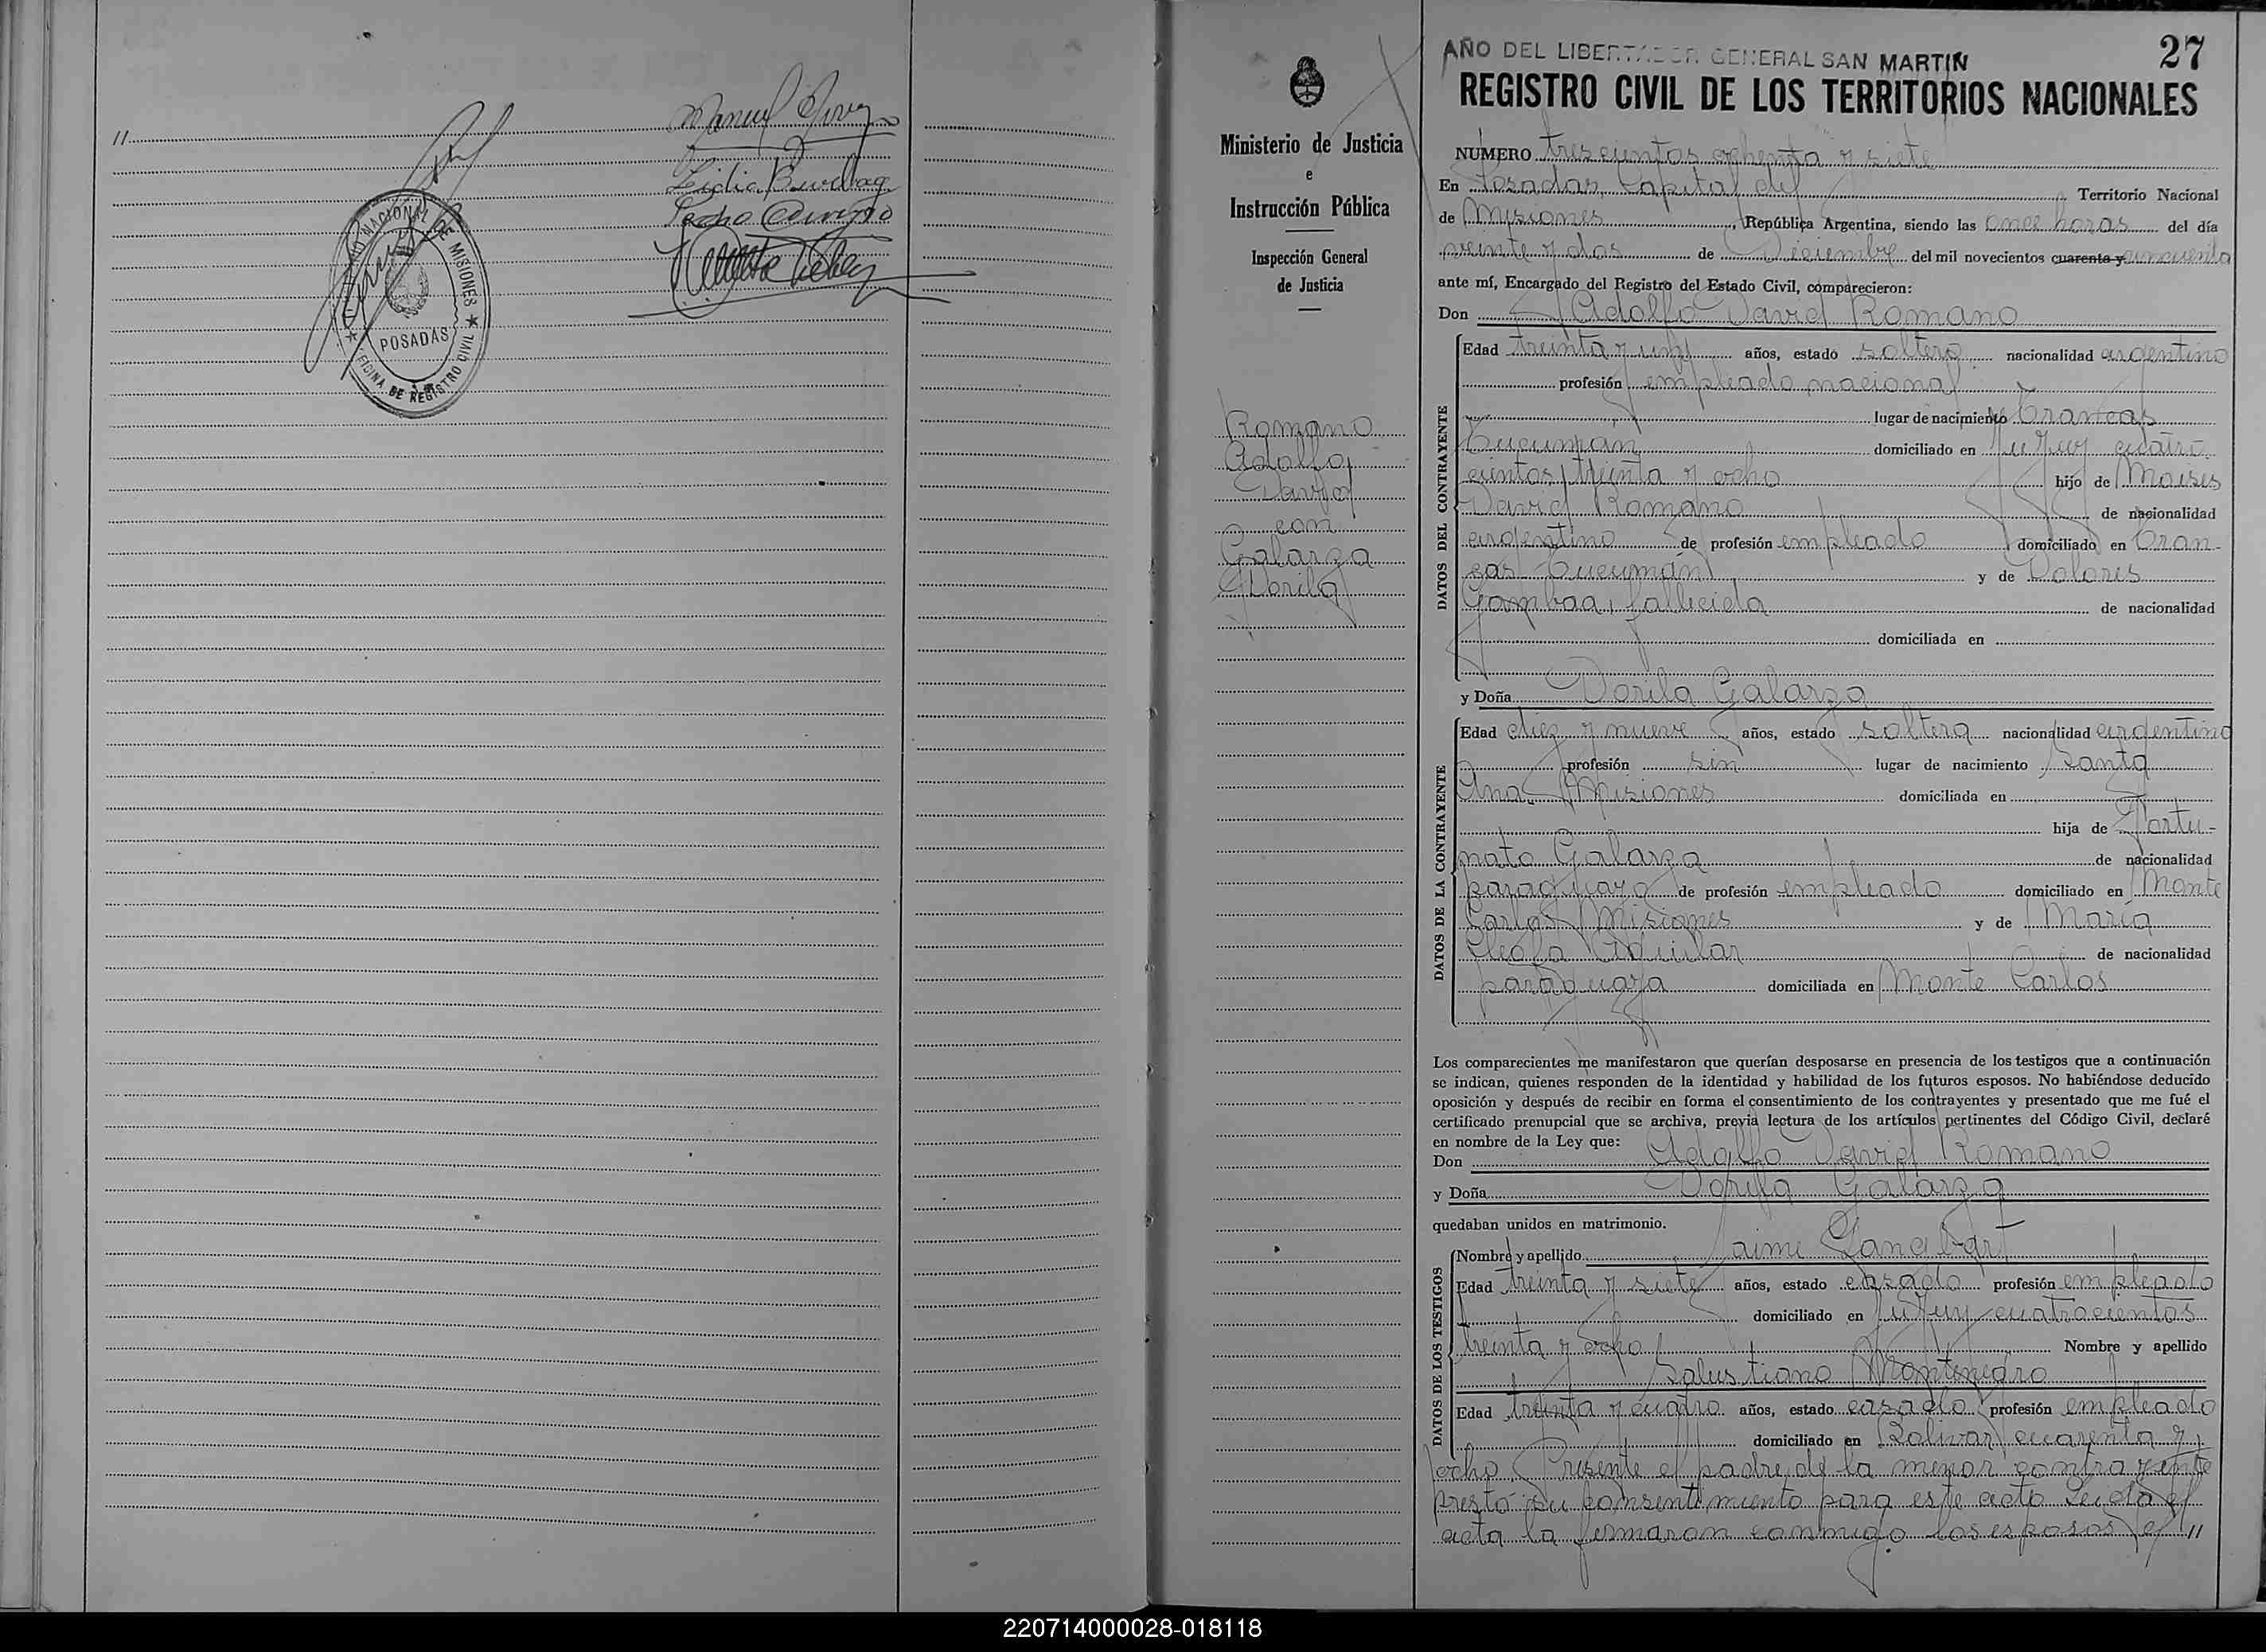 //
Lidia
Pedro
TERRITORIO NACIONAL DE MISIONES
POSADAS
OFICINA DE REGISTRO CIVIL
Ministerio de Justicia
e
Instrucción Pública
Inspección General
de Justicia
Romano
Adolfo
David
con
Galarza
Dorila
AÑO DEL LIBERTADOR GENERAL SAN MARTIN
27
REGISTRO CIVIL DE LOS TERRITORIOS NACIONALES
NUMERO trescientos ochenta y siete
En Posadas, Capital del Territorio Nacional
de Misiones, República Argentina, siendo las once horas del día
veinte y dos de Diciembre del mil novecientos cuarenta y cincuenta
ante mí, Encargado del Registro del Estado Civil, comparecieron:
Don Adolfo David Romano
DATOS DEL CONTRAYENTE
Edad treinta y un años, estado soltero nacionalidad argentino
profesión empleado nacional
lugar de nacimiento Trancas
Tucumán domiciliado en Jujuy cuatro
cientos treinta y ocho hijo de Moises
David Romano de nacionalidad
argentino de profesión empleado domiciliado en Tran-
cas Tucumán y de Dolores
Gamboa, fallecida de nacionalidad
domiciliada en
y Doña Dorila Galarza
DATOS DE LA CONTRAYENTE
Edad diez y nueve años, estado soltera nacionalidad argentina
profesión sin lugar de nacimiento Santa
Ana Misiones domiciliada en
hija de Fortu-
nato Galarza de nacionalidad
paraguayo de profesión empleado domiciliado en Monte
Carlos Misiones y de María
Cleofa Aguilar de nacionalidad
paraguaya domiciliada en Monte Carlos
Los comparecientes me manifestaron que querían desposarse en presencia de los testigos que a continuación
se indican, quienes responden de la identidad y habilidad de los futuros esposos. No habiéndose deducido
oposición y después de recibir en forma el consentimiento de los contrayentes y presentado que me fué el
certificado prenupcial que se archiva, previa lectura de los artículos pertinentes del Código Civil, declaré
en nombre de la Ley que:
Don Adolfo David Romano
y Doña Dorila Galarza
quedaban unidos en matrimonio.
DATOS DE LOS TESTIGOS
Nombre y apellido Jaime
Edad treinta y siete años, estado casado profesión empleado
domiciliado en Jujuy cuatrocientos
treinta y ocho Nombre y apellido
Salustiano Montenegro
Edad treinta y cuatro años, estado casado profesión empleado
domiciliado en Bolivar cuarenta y
ocho Presente el padre de la menor contrayente
prestó su consentimiento para este acto Leída el
acta la firmaron conmigo los esposos, el //
220714000028-018118